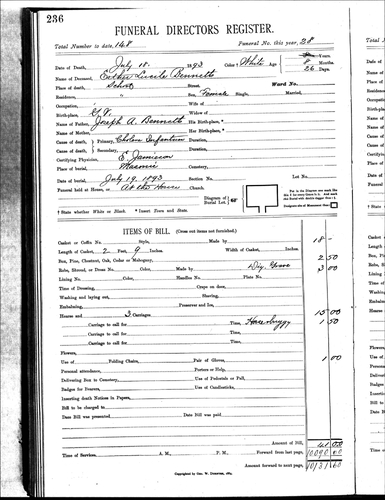 236
FUNERAL DIRECTORS REGISTER.
Total Number to date, 148 Funeral No. this year, 28
Date of Death, July 18. 1893 Color † White Age Years
8 Months
26 Days.
Name of Deceased, Esther Lucile Bennett
Place of Death, School Street, Ward No.
Residence, " Sex, Female Single, Married,
Occupation, Wife of
Birthplace, Widow of
Name of Father, Joseph A. Bennett His Birth-place,*
Name of Mother, Her Birth-place,*
Cause of death, Primary, Cholera Infantum Duration,
Cause of death, Secondary, Duration,
Certifying Physician, E. Jamieson
Place of burial, Masonic Cemetery,
Date of burial, July 19. 1893 Section No. Lot No.
Funeral held at House, or At the House Church. Diagram of Burial Lot,
† State whether White or Black. * Insert Town and State.
ITEMS OF BILL. (Cross out items not furnished.)
Casket or Coffin No. Style, Made by 18 -
Length of Casket, 2 Feet, 9 Inches. Width of Casket, Inches.
Box, Pine, Chestnut, Oak, Cedar or Mahogany, 2 50
Robe, Shroud, or Dress No. Color, Made by 3 00
Lining No. Color, Handles No. Plate No.
Time of Dressing, Crape on door,
Washing and laying out, Shaving,
Embalming, Preserver and Ice,
Hearse and 3 Carriages 15 00
Carriages to call for Time, 1 50
Carriage to call for Time,
Carriage to call for Time,
Flowers,
Use of Folding Chairs, Pair of Gloves, 1 00
Personal attendance, Porters or Help,
Delivering Box to Cemetery, Use of Pedestals or Pall,
Badges for Bearers, Use of Candlesticks,
Inserting death Notices in Papers,
Bill to be charged to
Date Bill was presented Date Bill was paid,
Amount of Bill, 41 00
Time of Services, A. M., P. M. Forward from last page,
Amount forward to next page,